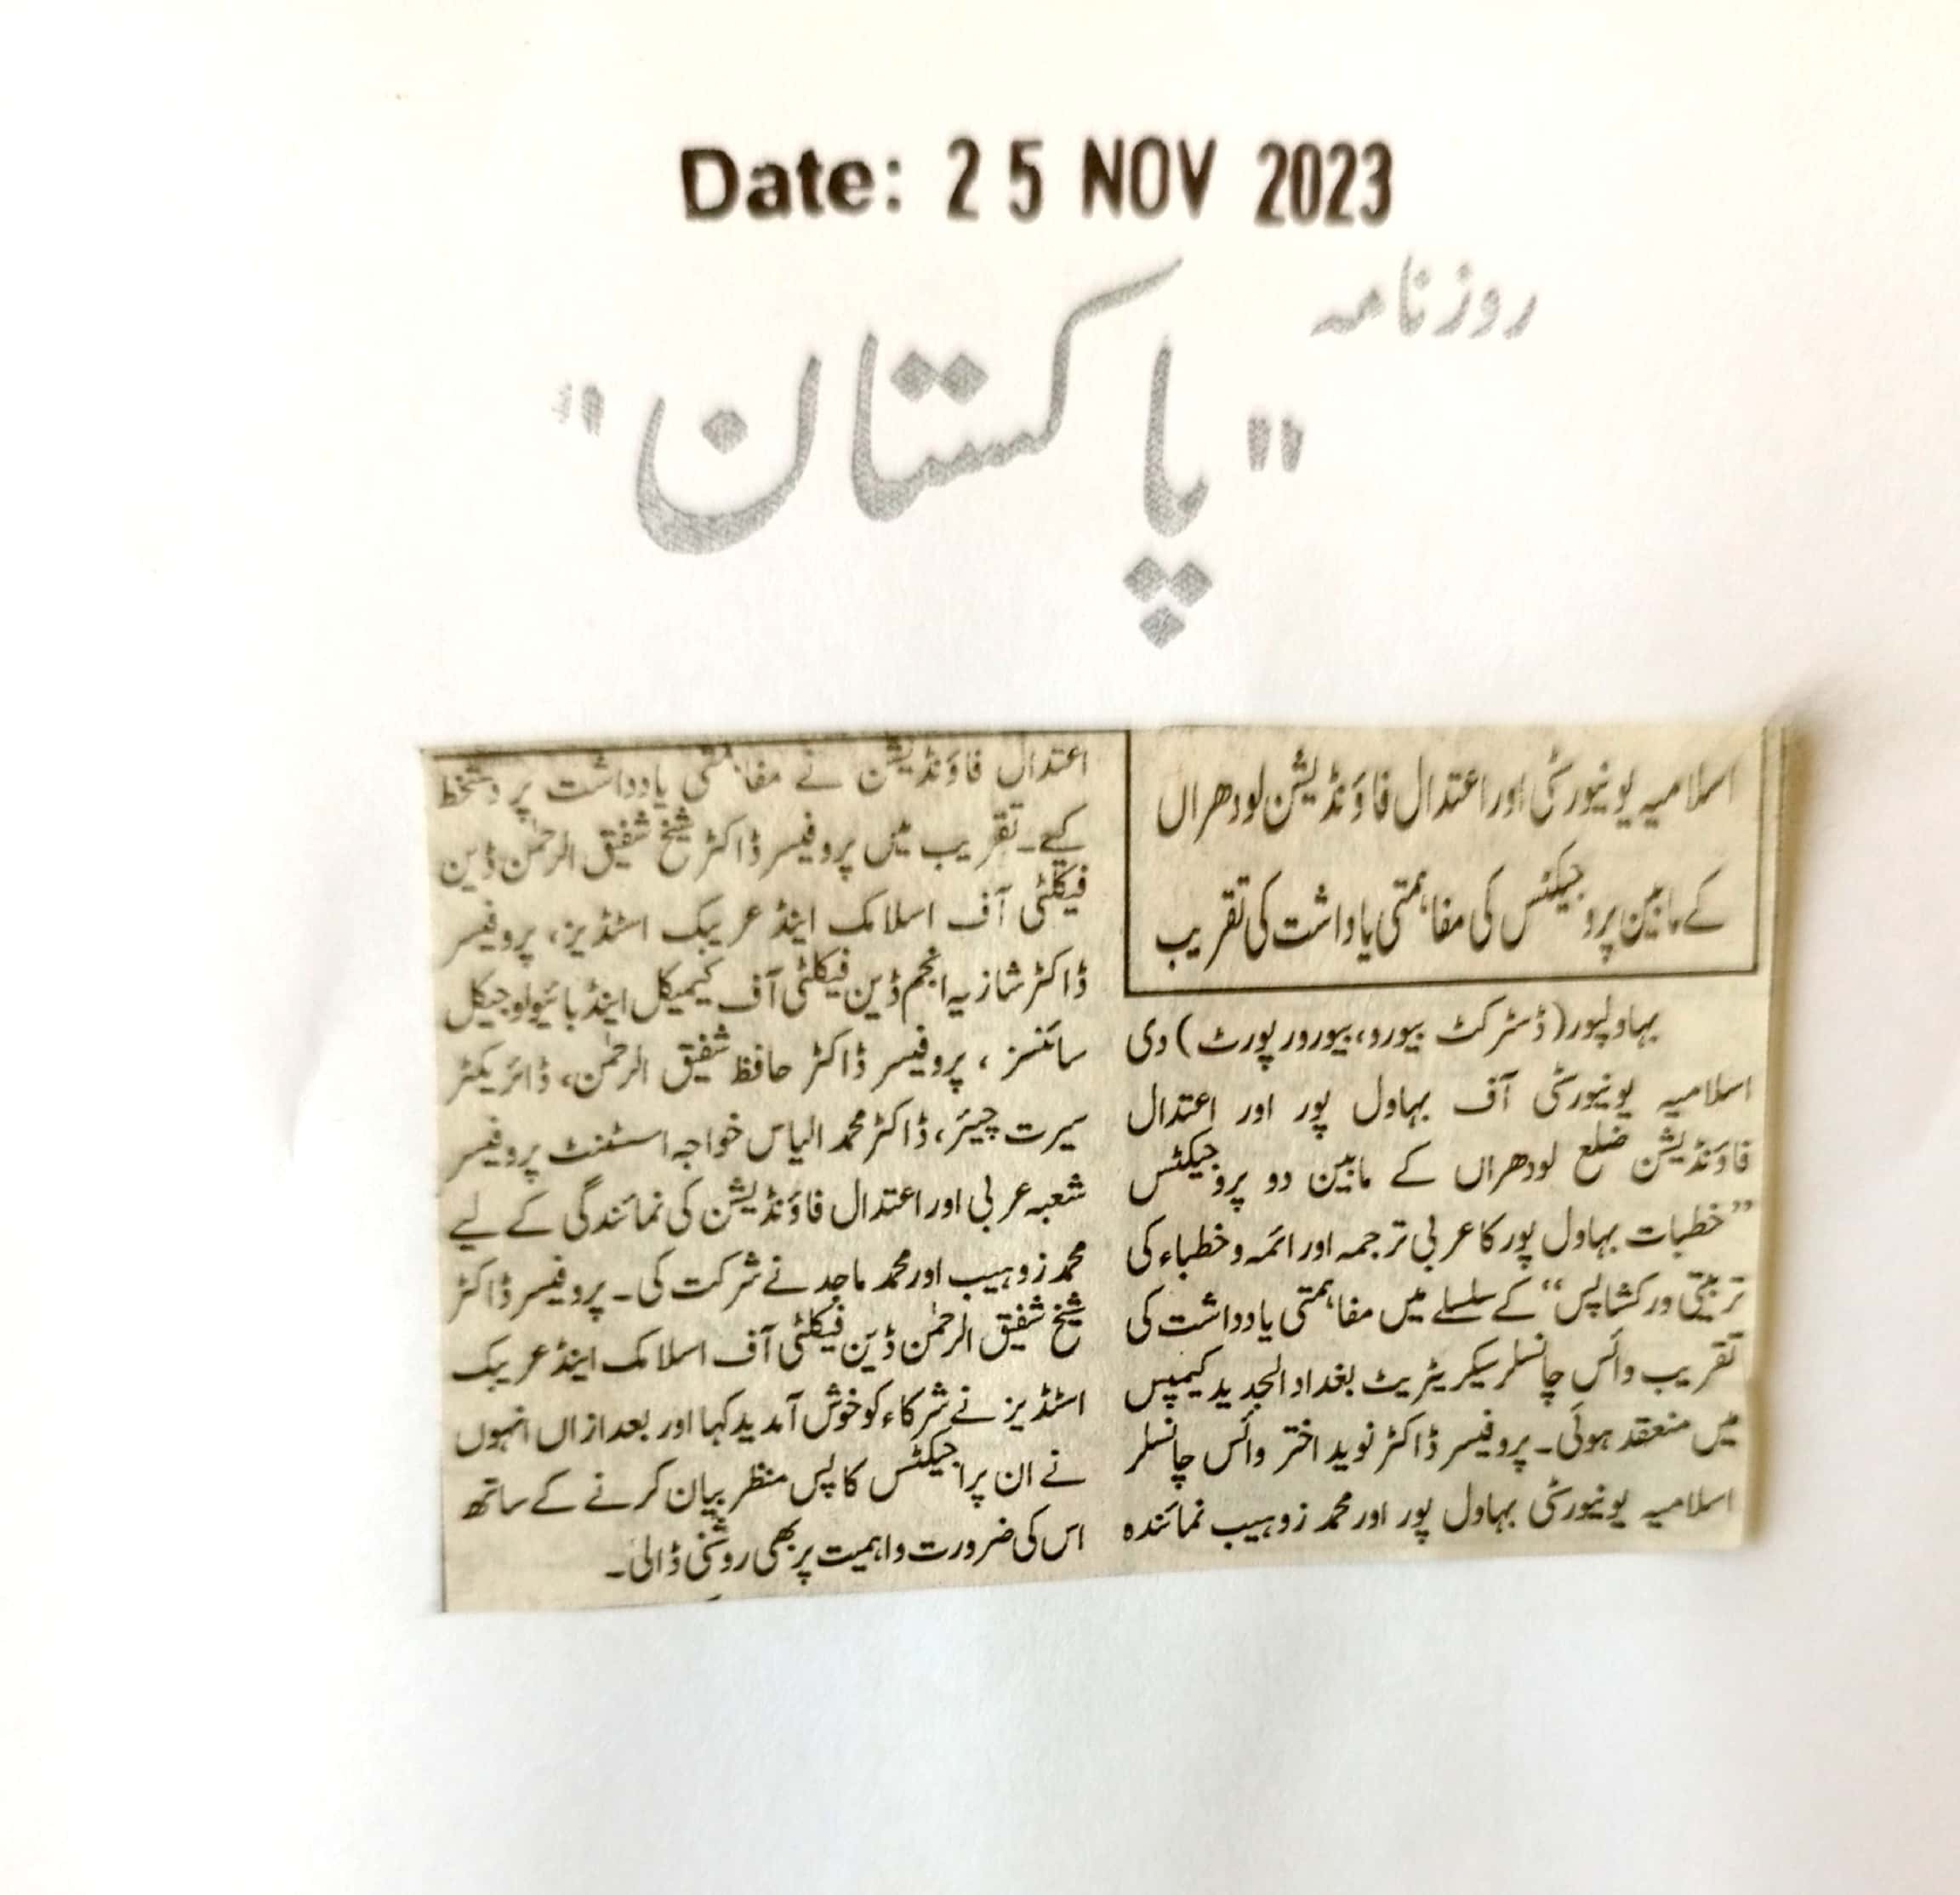 Date: 25 NOV 2023
روزنامہ
"پاکستان"
اسلامیہ یونیورسٹی اور اعتدال فاؤنڈیشن لودھراں
کے مابین پروجیکٹس کی مفاہمتی یاداشت کی تقریب
بہاولپور(ڈسٹرکٹ بیورو، بیورورپورٹ) دی
اسلامیہ یونیورسٹی آف بہاول پور اور اعتدال
فاؤنڈیشن ضلع لودھراں کے مابین دو پروجیکٹس
”خطبات بہاول پور کا عربی ترجمہ اور ائمہ و خطباء کی
تربیتی ورکشاپس“ کے سلسلے میں مفاہمتی یادداشت کی
تقریب وائس چانسلر سیکریٹریٹ بغداد الجدید کیمپس
میں منعقد ہوئی۔ پروفیسر ڈاکٹر نوید اختر وائس چانسلر
اسلامیہ یونیورسٹی بہاول پور اور محمد زوہیب نمائندہ
اعتدال فاؤنڈیشن نے مفاہمتی یادداشت پر دستخط
کیے۔ تقریب میں پروفیسر ڈاکٹر شیخ شفیق الرحمٰن ڈین
فیکلٹی آف اسلامک اینڈ عریبک اسٹڈیز، پروفیسر
ڈاکٹر شازیہ انجم ڈین فیکلٹی آف کیمیکل اینڈ بائیولوجیکل
سائنسز، پروفیسر ڈاکٹر حافظ شفیق الرحمٰن، ڈائریکٹر
سیرت چیئر، ڈاکٹر محمد الیاس خواجہ اسسٹنٹ پروفیسر
شعبہ عربی اور اعتدال فاؤنڈیشن کی نمائندگی کے لیے
محمد زوہیب اور محمد ماجد نے شرکت کی۔ پروفیسر ڈاکٹر
شیخ شفیق الرحمٰن ڈین فیکلٹی آف اسلامک اینڈ عریبک
اسٹڈیز نے شرکاء کو خوش آمدید کہا اور بعد ازاں انہوں
نے ان پراجیکٹس کا پس منظر بیان کرنے کے ساتھ
اس کی ضرورت و اہمیت پر بھی روشنی ڈالی۔